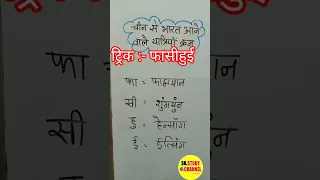 चीन से भारत आने
वाले यात्रियों क्रम
ट्रिक :- फासीहुई
फा = फाह्यान
सी = शुंगयुन
हु = हेनसाँग
ई = ईत्सिंग
SK.STUDY
CHANNEL